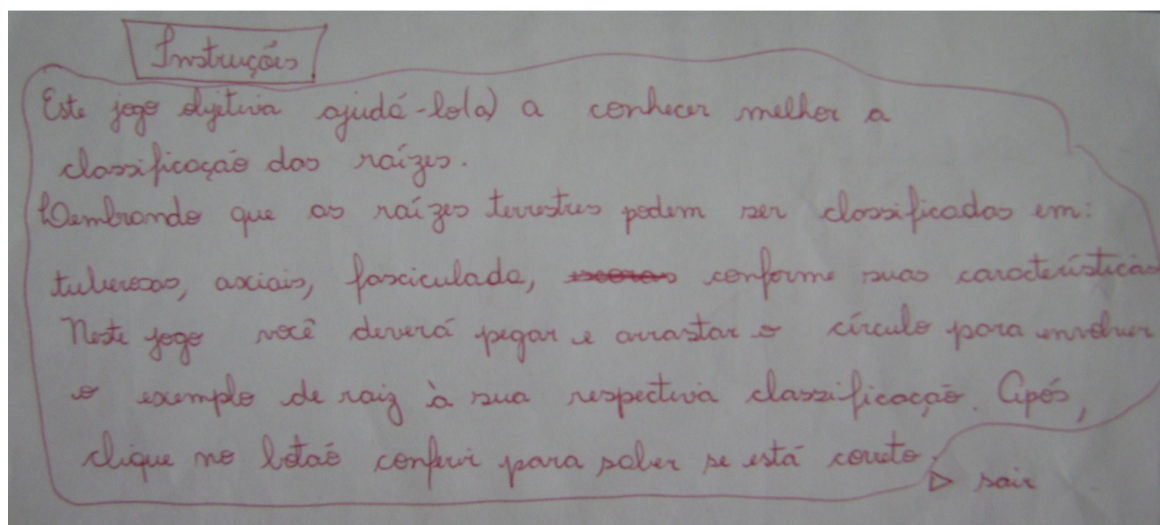 Instruções
Este jogo objetiva ajudá-lo(a) a conhecer melhor a
classificação das raízes.
Lembrando que as raízes terrestres podem ser classificadas em:
tuberosas, axiais, fasciculada, escoras conforme suas características
Neste jogo você deverá pegar e arrastar o círculo para envolver
o exemplo de raiz à sua respectiva classificação. Após,
clique no botão conferir para saber se está correto.
▷ sair